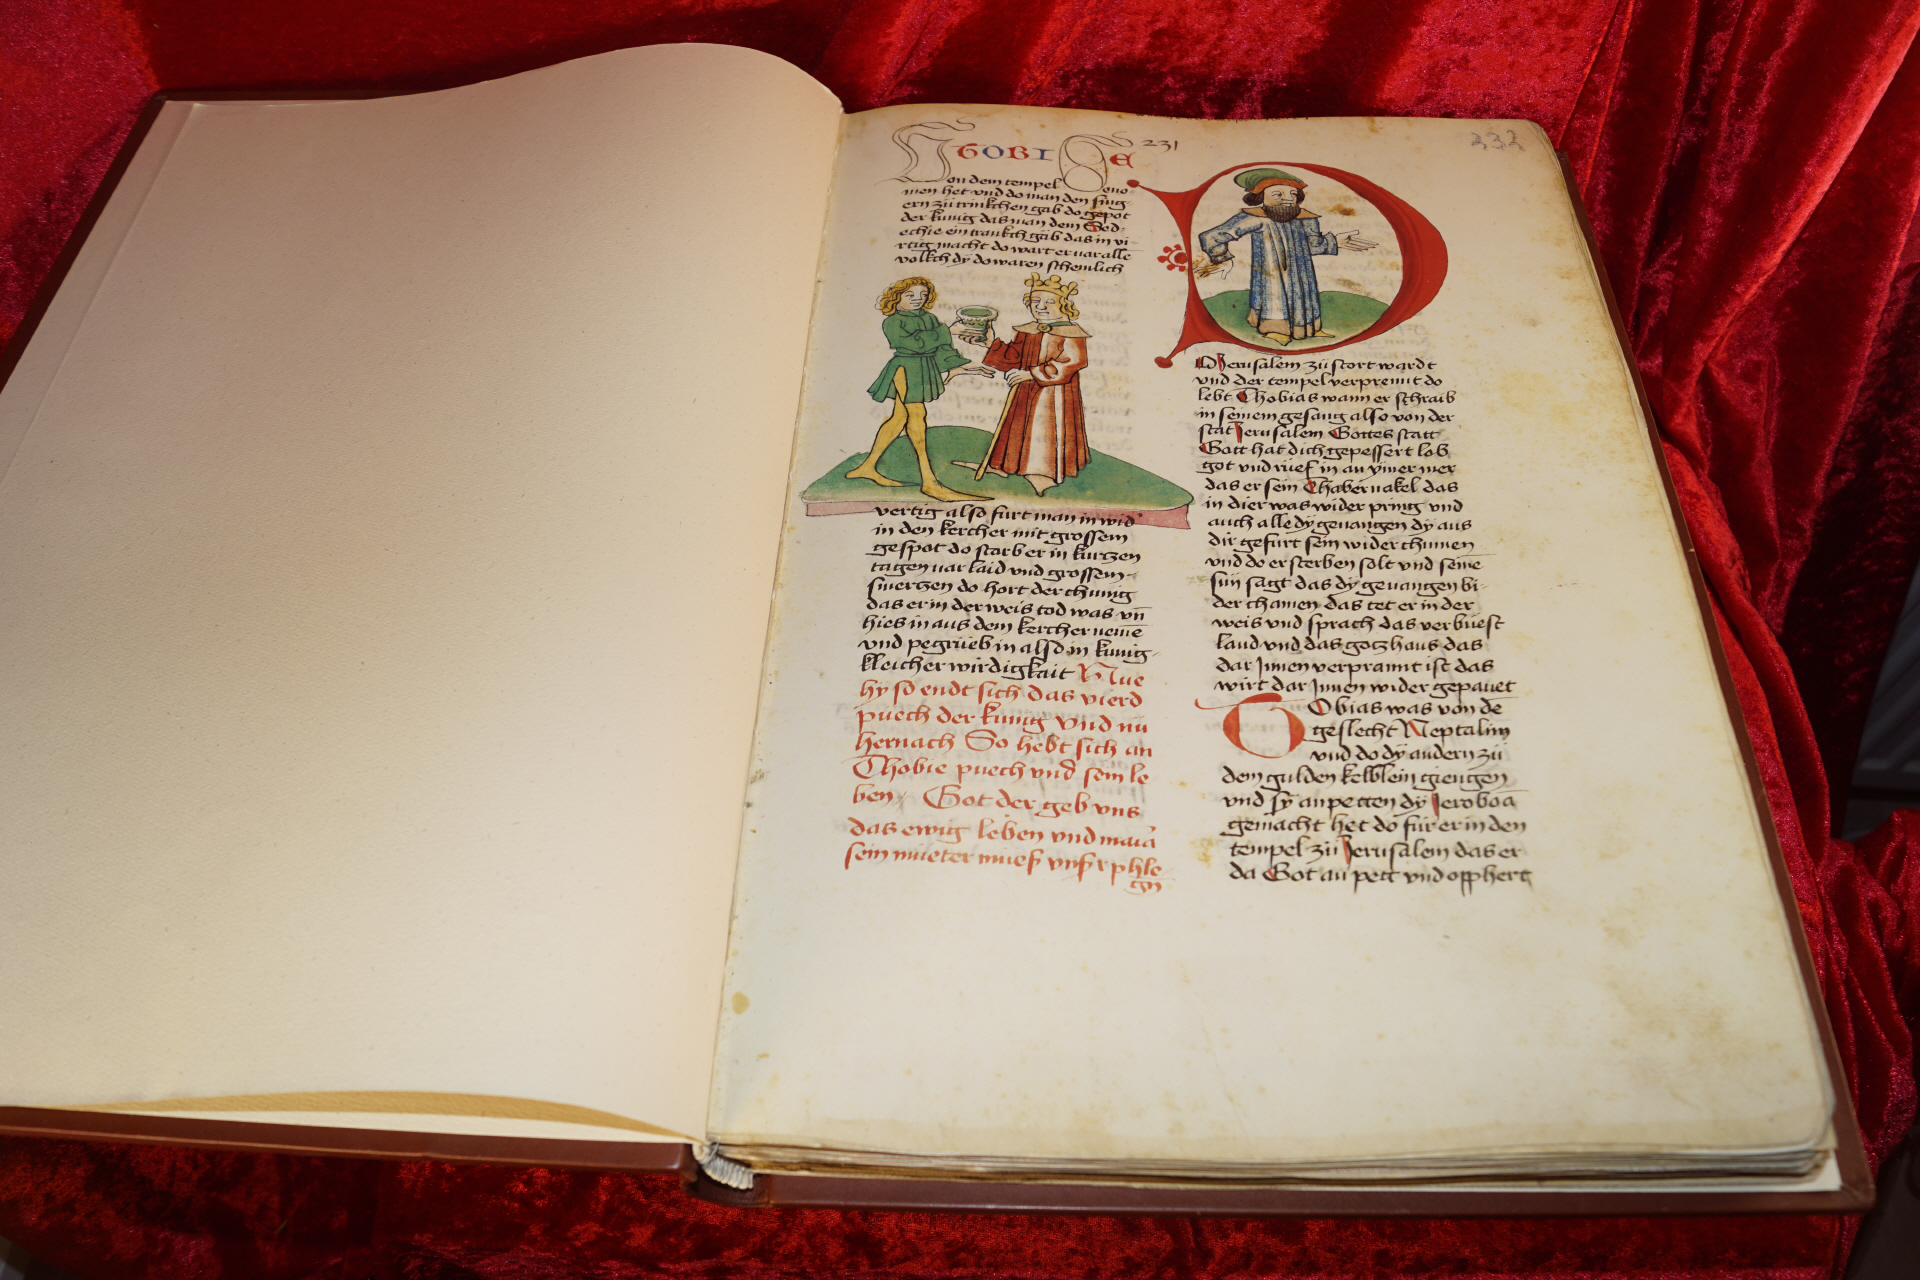 THOBIE
231
232
von dem tempel geno-
men het vnd do man den sing
ern zü trinkchen gab do gepot
der kunig das man dem Sed
echie ein trankch gäb das in vi
rtig macht do wart er uar alle
volkch dÿ do waren schemlich
vertig also fürt man in wid
in den kercher mit grossem
gespot do starb er in kurtzen
tagen uar laid vnd grossem
smertzen do hort der chunig
das er in der weis tod was vn̄
hies in aus dem kercher neme
vnd pegrueb in also in kunig-
kleicher wirdigkait Nue
hÿ so endt sich das vierd
puech der kunig vnd nu
hernach So hebt sich an
Thobie puech vnd sein le
ben Got der geb vns
das ewig leben vnd maria
sein mueter mues vnser phle
gn
DO Jerusalem zü stort wardt
vnd der tempel verprennt do
lebt Thobias wann er schraib
in seinem gesang also von der
stat Jerusalem Gottes statt
Gott hat dich gepessert lob
got vnd rüef in an ymer mer
das er sein Thabernakel das
in dier was wider pring vnd
auch alle dÿ geuangen dÿ aus
dir gefürt sein wider chumen
vnd do er sterben solt vnd seinē
sün sagt das dÿ geuangen bi-
der chamen das tet er in der
weis vnd sprach das verbuest
land vnd das gotzhaus das
dar Jnnen verprannt ist das
wirt dar Jnnen wider gepauet
TObias was von de
geslecht Neptalim
vnd do dÿ andern zü
dem gulden kelblein giengen
vnd sÿ anpetten dÿ Jeroboā
gemacht het do für er in den
tempel zü Jerusalem das er
da Got an pett vnd opphert